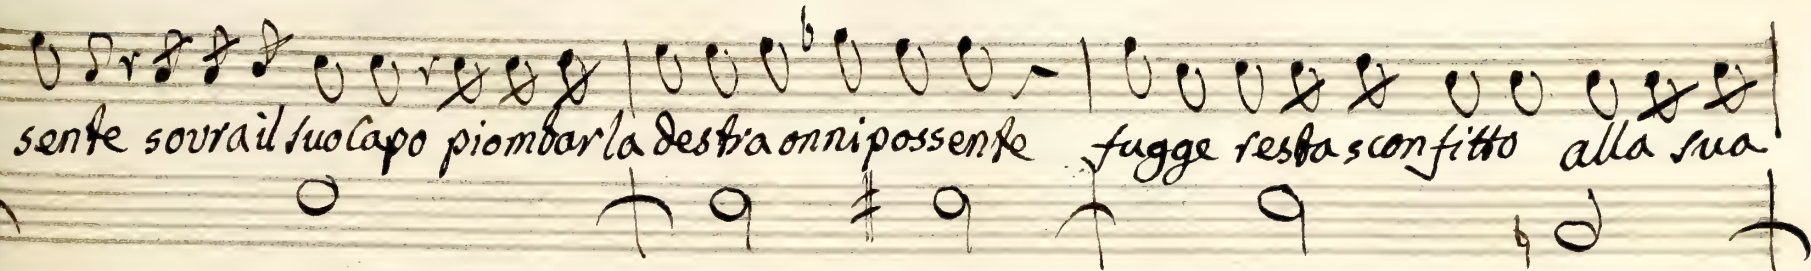 sente sovra il suo Capo piombar la destra onnipossente fugge resta sconfitto alla sua